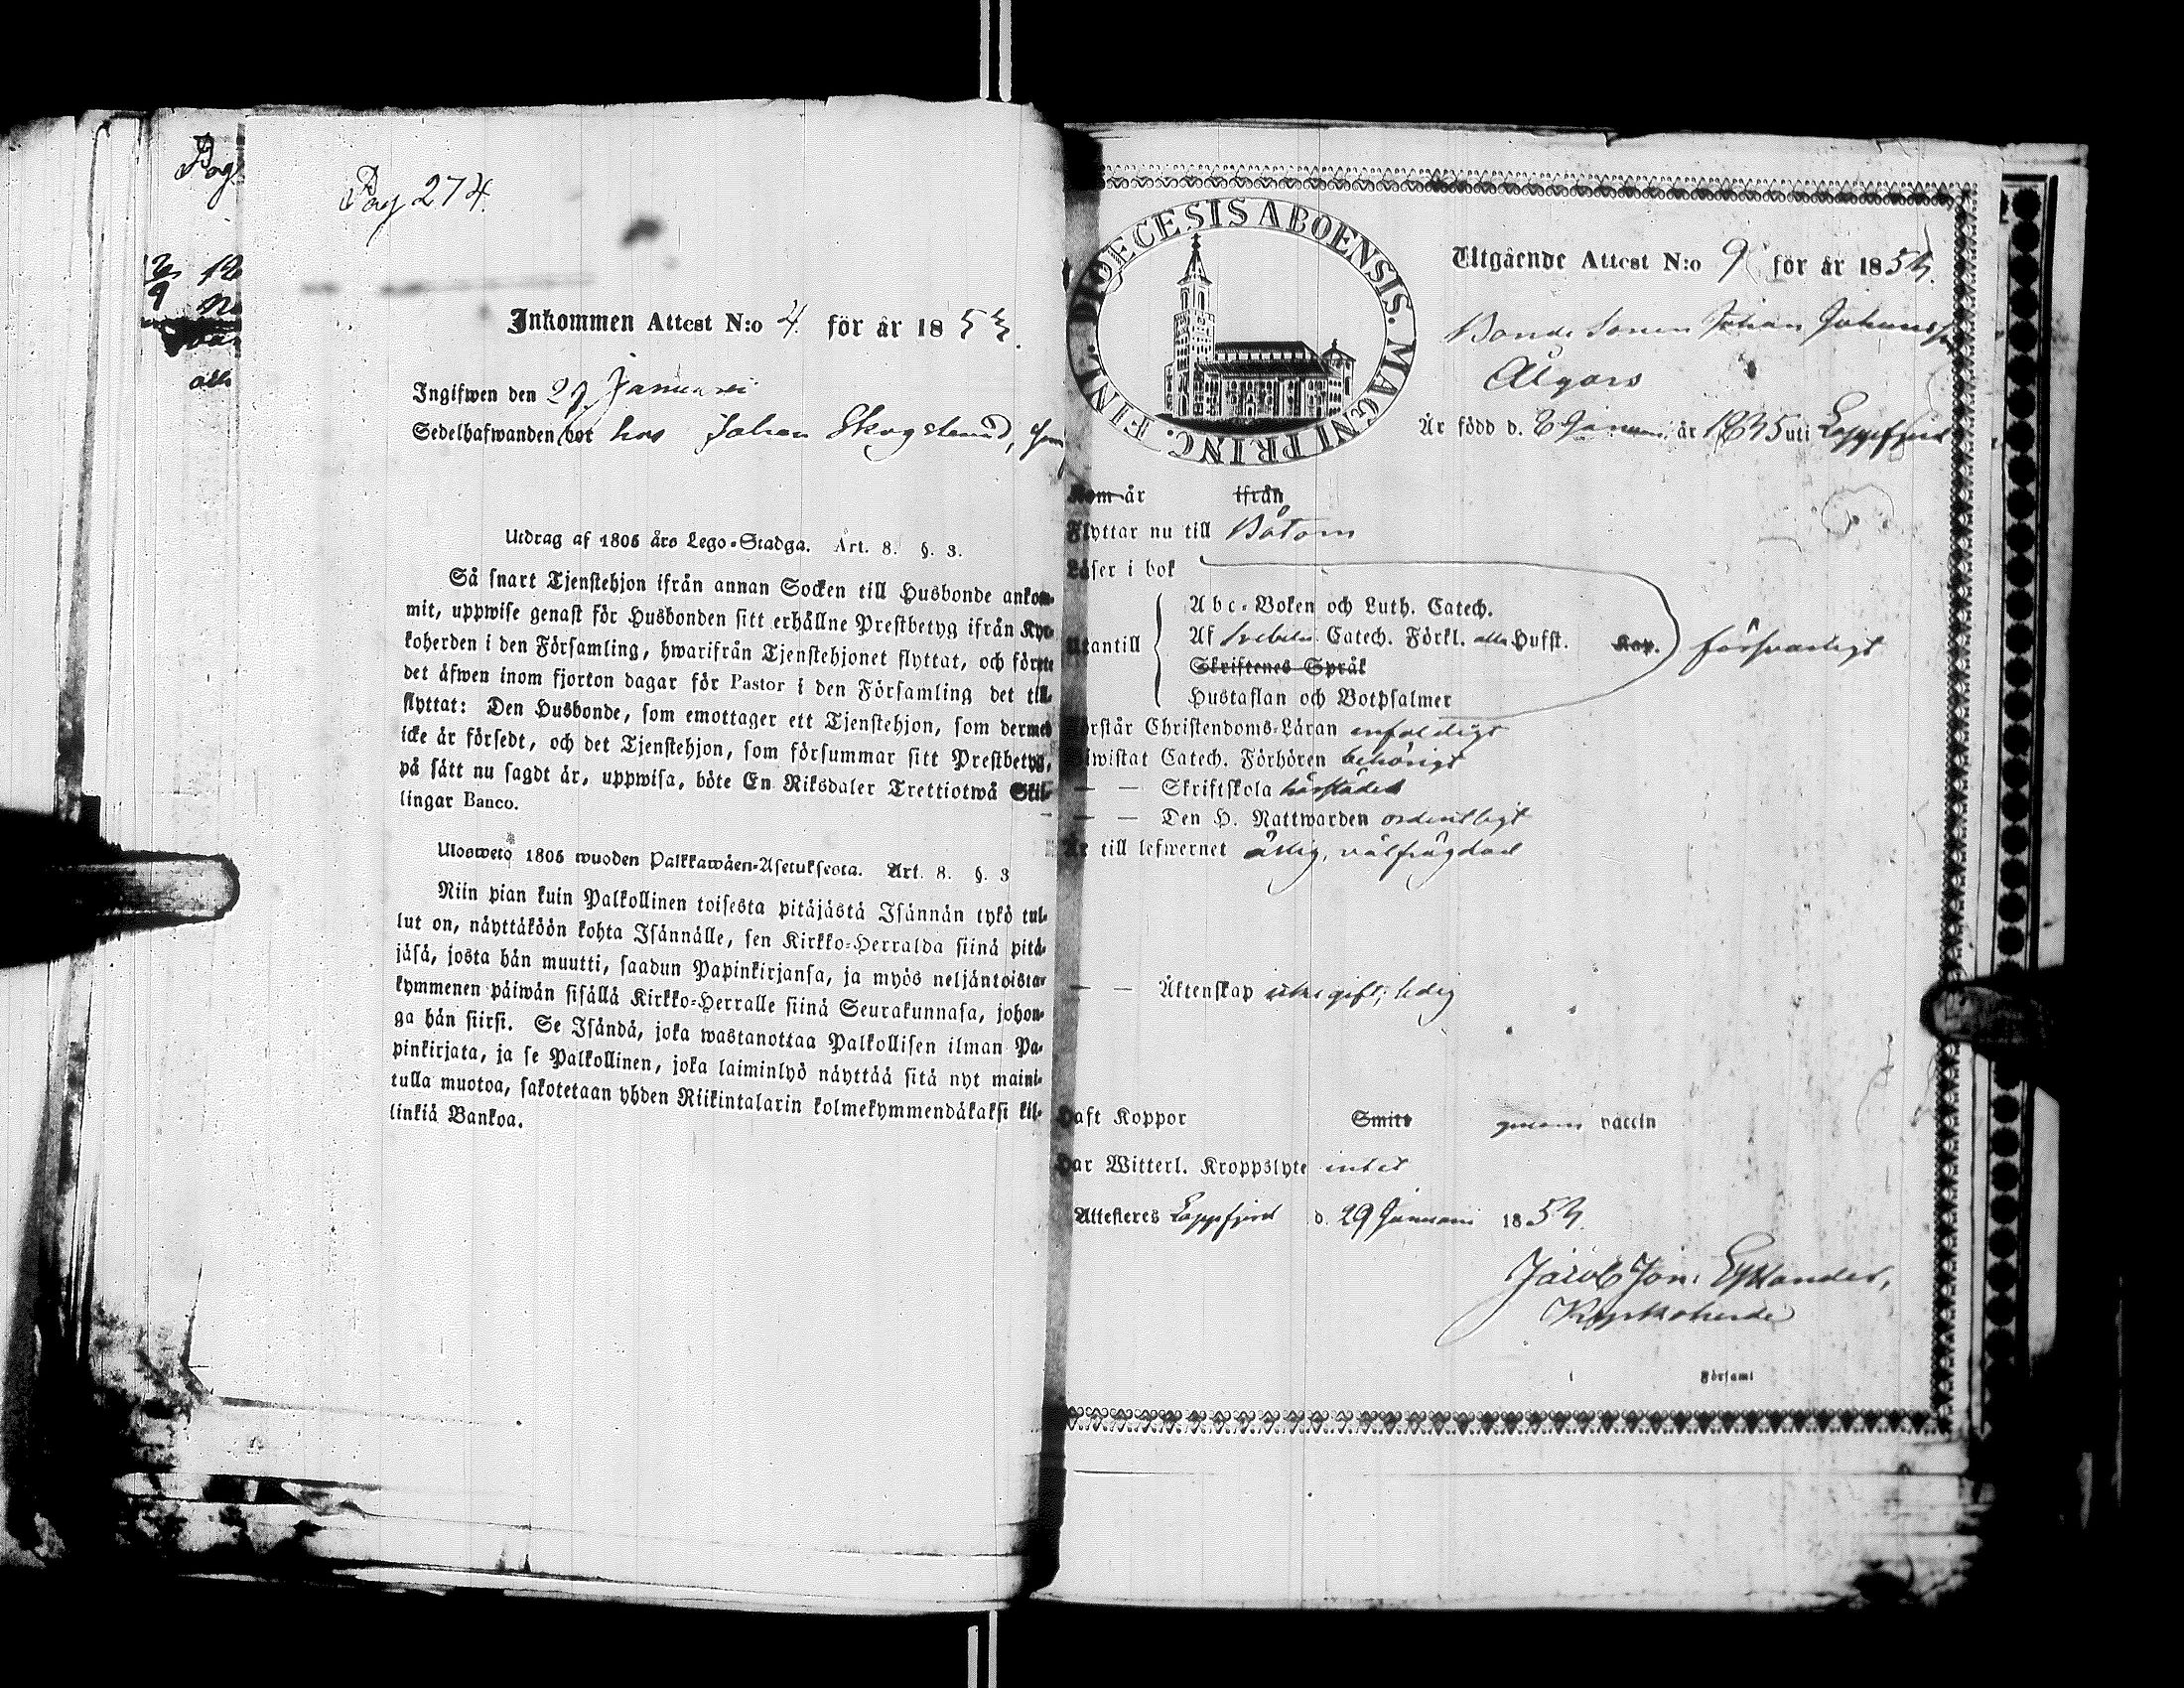 Pag 274.
Inkommen Attest N:o 4. för år 1853.
Ingifwen den 29 Januari
Sedelhafwanden bor hos Johan Skogslund,
Utdrag af 1805 års Lego-Stadga. Art. 8. §. 3.
Så snart Tjenstehjon ifrån annan Socken till Husbonde ankom-
mit, uppwise genast för Husbonden sitt erhållne Prestbetyg ifrån Kyr-
koherden i den Församling, hwarifrån Tjenstehjonet flyttat, och förete
det äfwen inom fjorton dagar för Pastor i den Församling det till-
flyttat: Den Husbonde, som emottager ett Tjenstehjon, som dermed
icke är försedt, och det Tjenstehjon, som försummar sitt Prestbetyg,
på sätt nu sagdt är, uppwisa, böte En Riksdaler Trettiotwå Skil-
lingar Banco.
Ulosweto 1805 wuoden Palkkawäen-Asetuksesta. Art. 8. §. 3
Niin pian kuin Palkollinen toisesta pitäjästä Isännän tykö tul-
lut on, näyttäköön kohta Isännälle, sen Kirkko-Herralda siinä pitä-
jäsä, josta hän muutti, saadun Papinkirjansa, ja myös neljäntoista-
kymmenen päiwän sisällä Kirkko-Herralle siinä Seurakunnasa, johon-
ga hän siirsi. Se Isändä, joka wastanottaa Palkollisen ilman Pa-
pinkirjata, ja se Palkollinen, joka laiminlyö näyttää sitä nyt maini-
tulla muotoa, sakotetaan yhden Riikintalarin kolmekymmendäkaksi kil-
linkiä Bankoa.
DIOECESIS ABOENSIS. MAGNI PRINC. FINL.
Utgående Attest N:o 9 för år 1853.
Bonde Sonen Johan Johansson
Älgars
Är född d. 8 Januari år 1835 uti Lappfjerd
Kom år ifrån
Flyttar nu till Båtom
Läser i bok
Abc-Boken och Luth. Catech.
Utantill Af Svebelii Catech. Förkl. alla Hufst. Kap. försvarligt
Skriftenes Språk
Hustaflan och Botpsalmer
Förstår Christendoms-Läran enfaldigt
Biwistat Catech. Förhören behörigt
— — Skriftskola härstädes
— — Den H. Nattwarden ordentligt
Är till lefwernet ärlig, välfrägdad
— — Äktenskap icke gift; ledig
Haft Koppor Smitt genom vaccin
Har Witterl. Kroppslyte intet
Attesteras Lappfjerd d. 29 Januari 1853.
Jacob Jon.
Kyrkoherde
i Församl